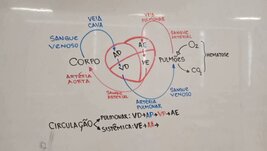 VEIA
CAVA
VEIA
PULMONAR
SANGUE
VENOSO
SANGUE
ARTERIAL
AD
AE
O₂
HEMATOSE
CORPO
VD
VE
PULMÕES
CO₂
ARTÉRIA
AORTA
SANGUE
ARTERIAL
SANGUE
VENOSO
ARTÉRIA
PULMONAR
CIRCULAÇÃO
PULMONAR: VD→AP→VP→AE
SISTÊMICA: VE→AA→